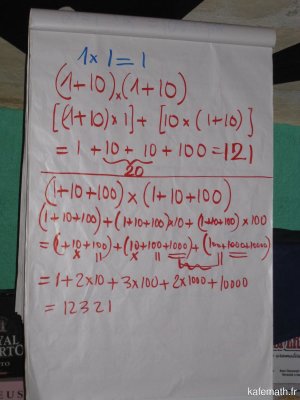 1 x 1 = 1
(1+10) x (1+10)
[(1+10) x 1] + [10 x (1+10)]
= 1 + 10 + 10 + 100 = 121
20
(1+10+100) x (1+10+100)
(1+10+100) + (1+10+100) x 10 + (1+10+100) x 100
= (1+10+100) + (10+100+1000) + (100+1000+10000)
= 1 + 2x10 + 3x100 + 2x1000 + 10000
= 12321
kafemath.fr